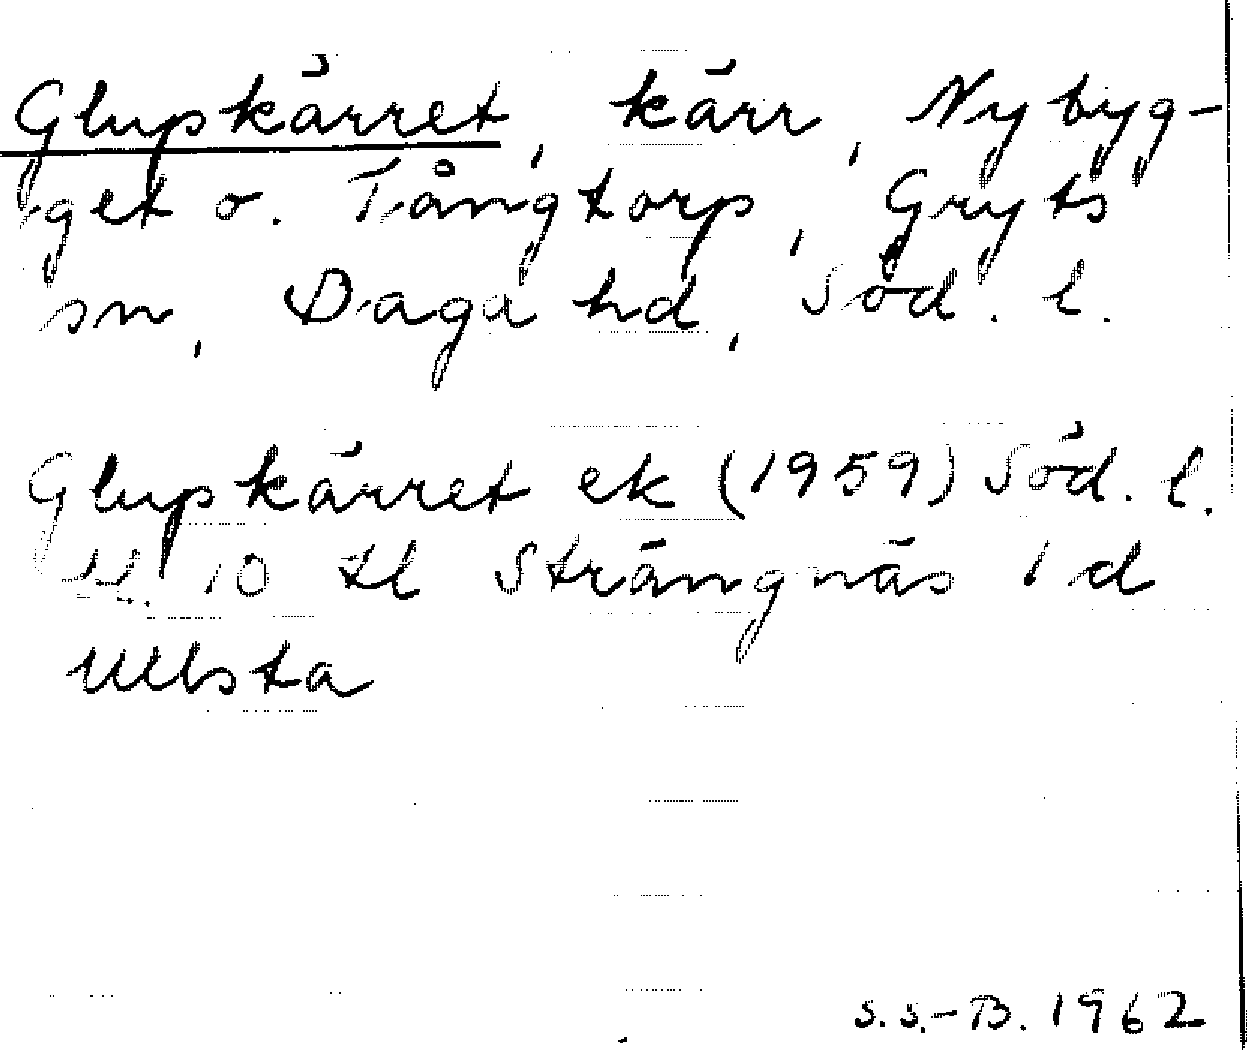 Glupkärret, kärr, Nybyg-
get o. Tångtorp, Gryts
sn, Daga hd, Söd. l.
Glupkärret ek (1959) Söd. l.
4. 10 tl Strängnäs i d
Ullsta
S.S.-B. 1962